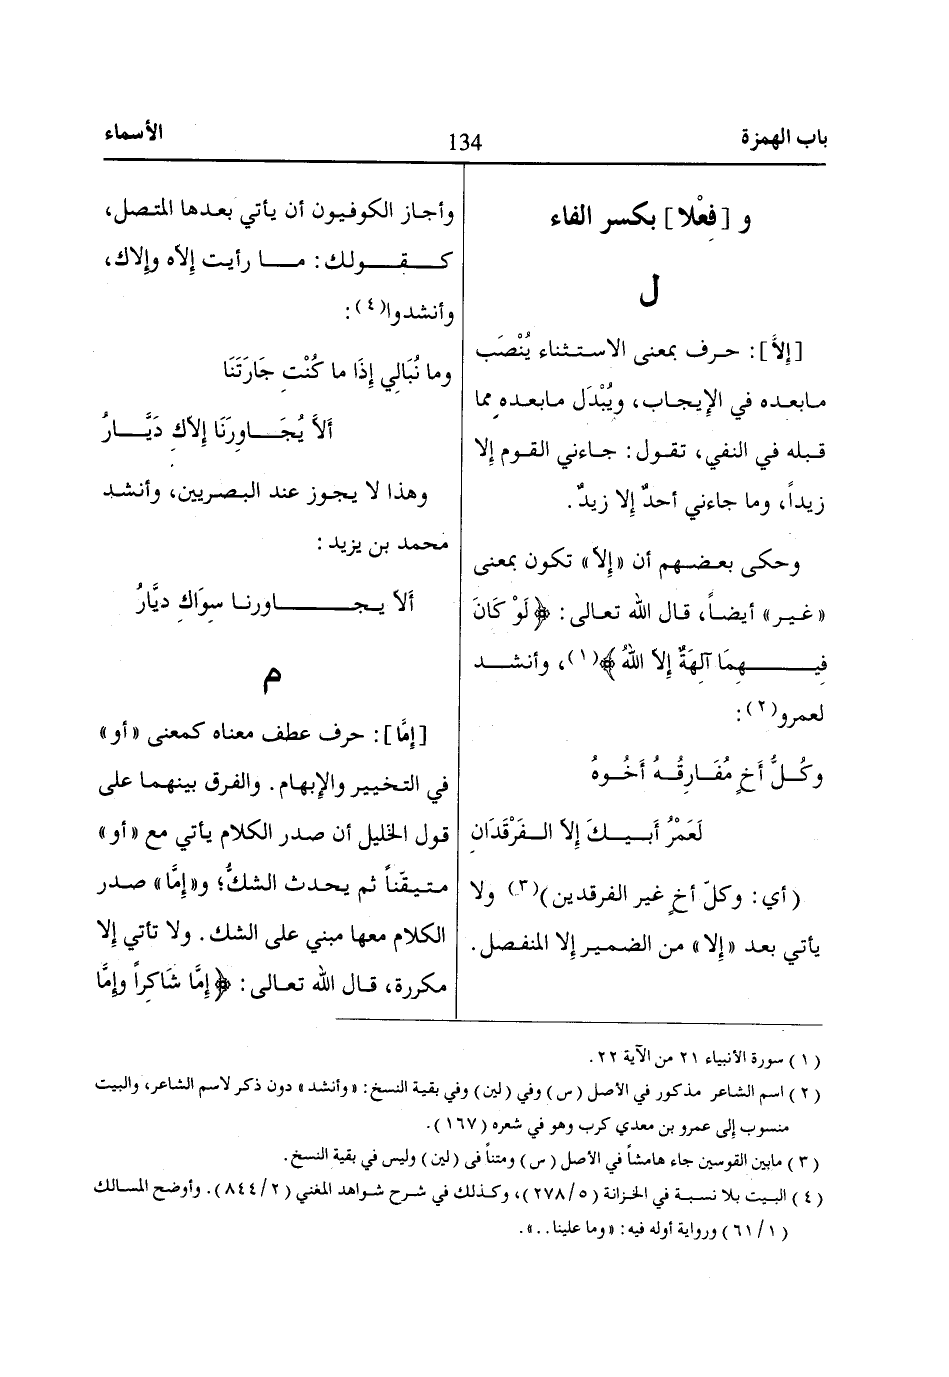 باب الهمزة
134
الأسماء
و [فِعْلا] بكسر الفاء
ل
[إلاَّ]: حرف بمعنى الاستثناء يُنْصَب
مابعده في الإيجاب، ويُبْدَل مابعده مما
قبله في النفي، تقول: جاءني القوم إلا
زيداً، وما جاءني أحدٌ إلا زيدٌ.
وحكى بعضهم أن «إلاّ» تكون بمعنى
«غير» أيضاً، قال الله تعالى: ﴿لَوْ كَانَ
فيهمَا آلهَةٌ إلاّ اللهُ﴾(١)، وأنشد
لعمرو(٢):
وكُلُّ أَخٍ مُفَارِقُهُ أَخُوهُ
لَعَمْرُ أَبيكَ إلاّ الفَرْقَدَانِ
(أي: وكلّ أخٍ غير الفرقدين)(٣) ولا
يأتي بعد «إلا» من الضمير إلا المنفصل.
وأجاز الكوفيون أن يأتي بعدها المتصل،
كقولك: ما رأيت إلاّه وإلاك،
وأنشدوا(٤):
وما نُبَالِي إِذَا ما كُنْتِ جَارَتَنَا
ألاَّ يُجَاوِرَنَا إِلاّكِ دَيَّارُ
وهذا لا يجوز عند البصريين، وأنشد
محمد بن يزيد:
ألاّ يجاورنا سِوَاكِ ديَّارُ
م
[إمَّا]: حرف عطف معناه كمعنى «أو»
في التخيير والإبهام. والفرق بينهما على
قول الخليل أن صدر الكلام يأتي مع «أو»
متيقّناً ثم يحدث الشكُّ؛ و«إمَّا» صدر
الكلام معها مبني على الشك. ولا تأتي إلا
مكررة، قال الله تعالى: ﴿إمَّا شَاكِراً وإمَّا
(١) سورة الأنبياء ٢١ من الآية ٢٢.
(٢) اسم الشاعر مذكور في الأصل (س) وفي (لين) وفي بقية النسخ: «وأنشد» دون ذكر لاسم الشاعر، والبيت
منسوب إلى عمرو بن معدي كرب وهو في شعره (١٦٧).
(٣) مابين القوسين جاء هامشاً في الأصل (س) ومتناً في (لين) وليس في بقية النسخ.
(٤) البيت بلا نسبة في الخزانة (٥/ ٢٧٨)، وكذلك في شرح شواهد المغني (٢/ ٨٤٤). وأوضح المسالك
(١/ ٦١) ورواية أوله فيه: «وما علينا..».